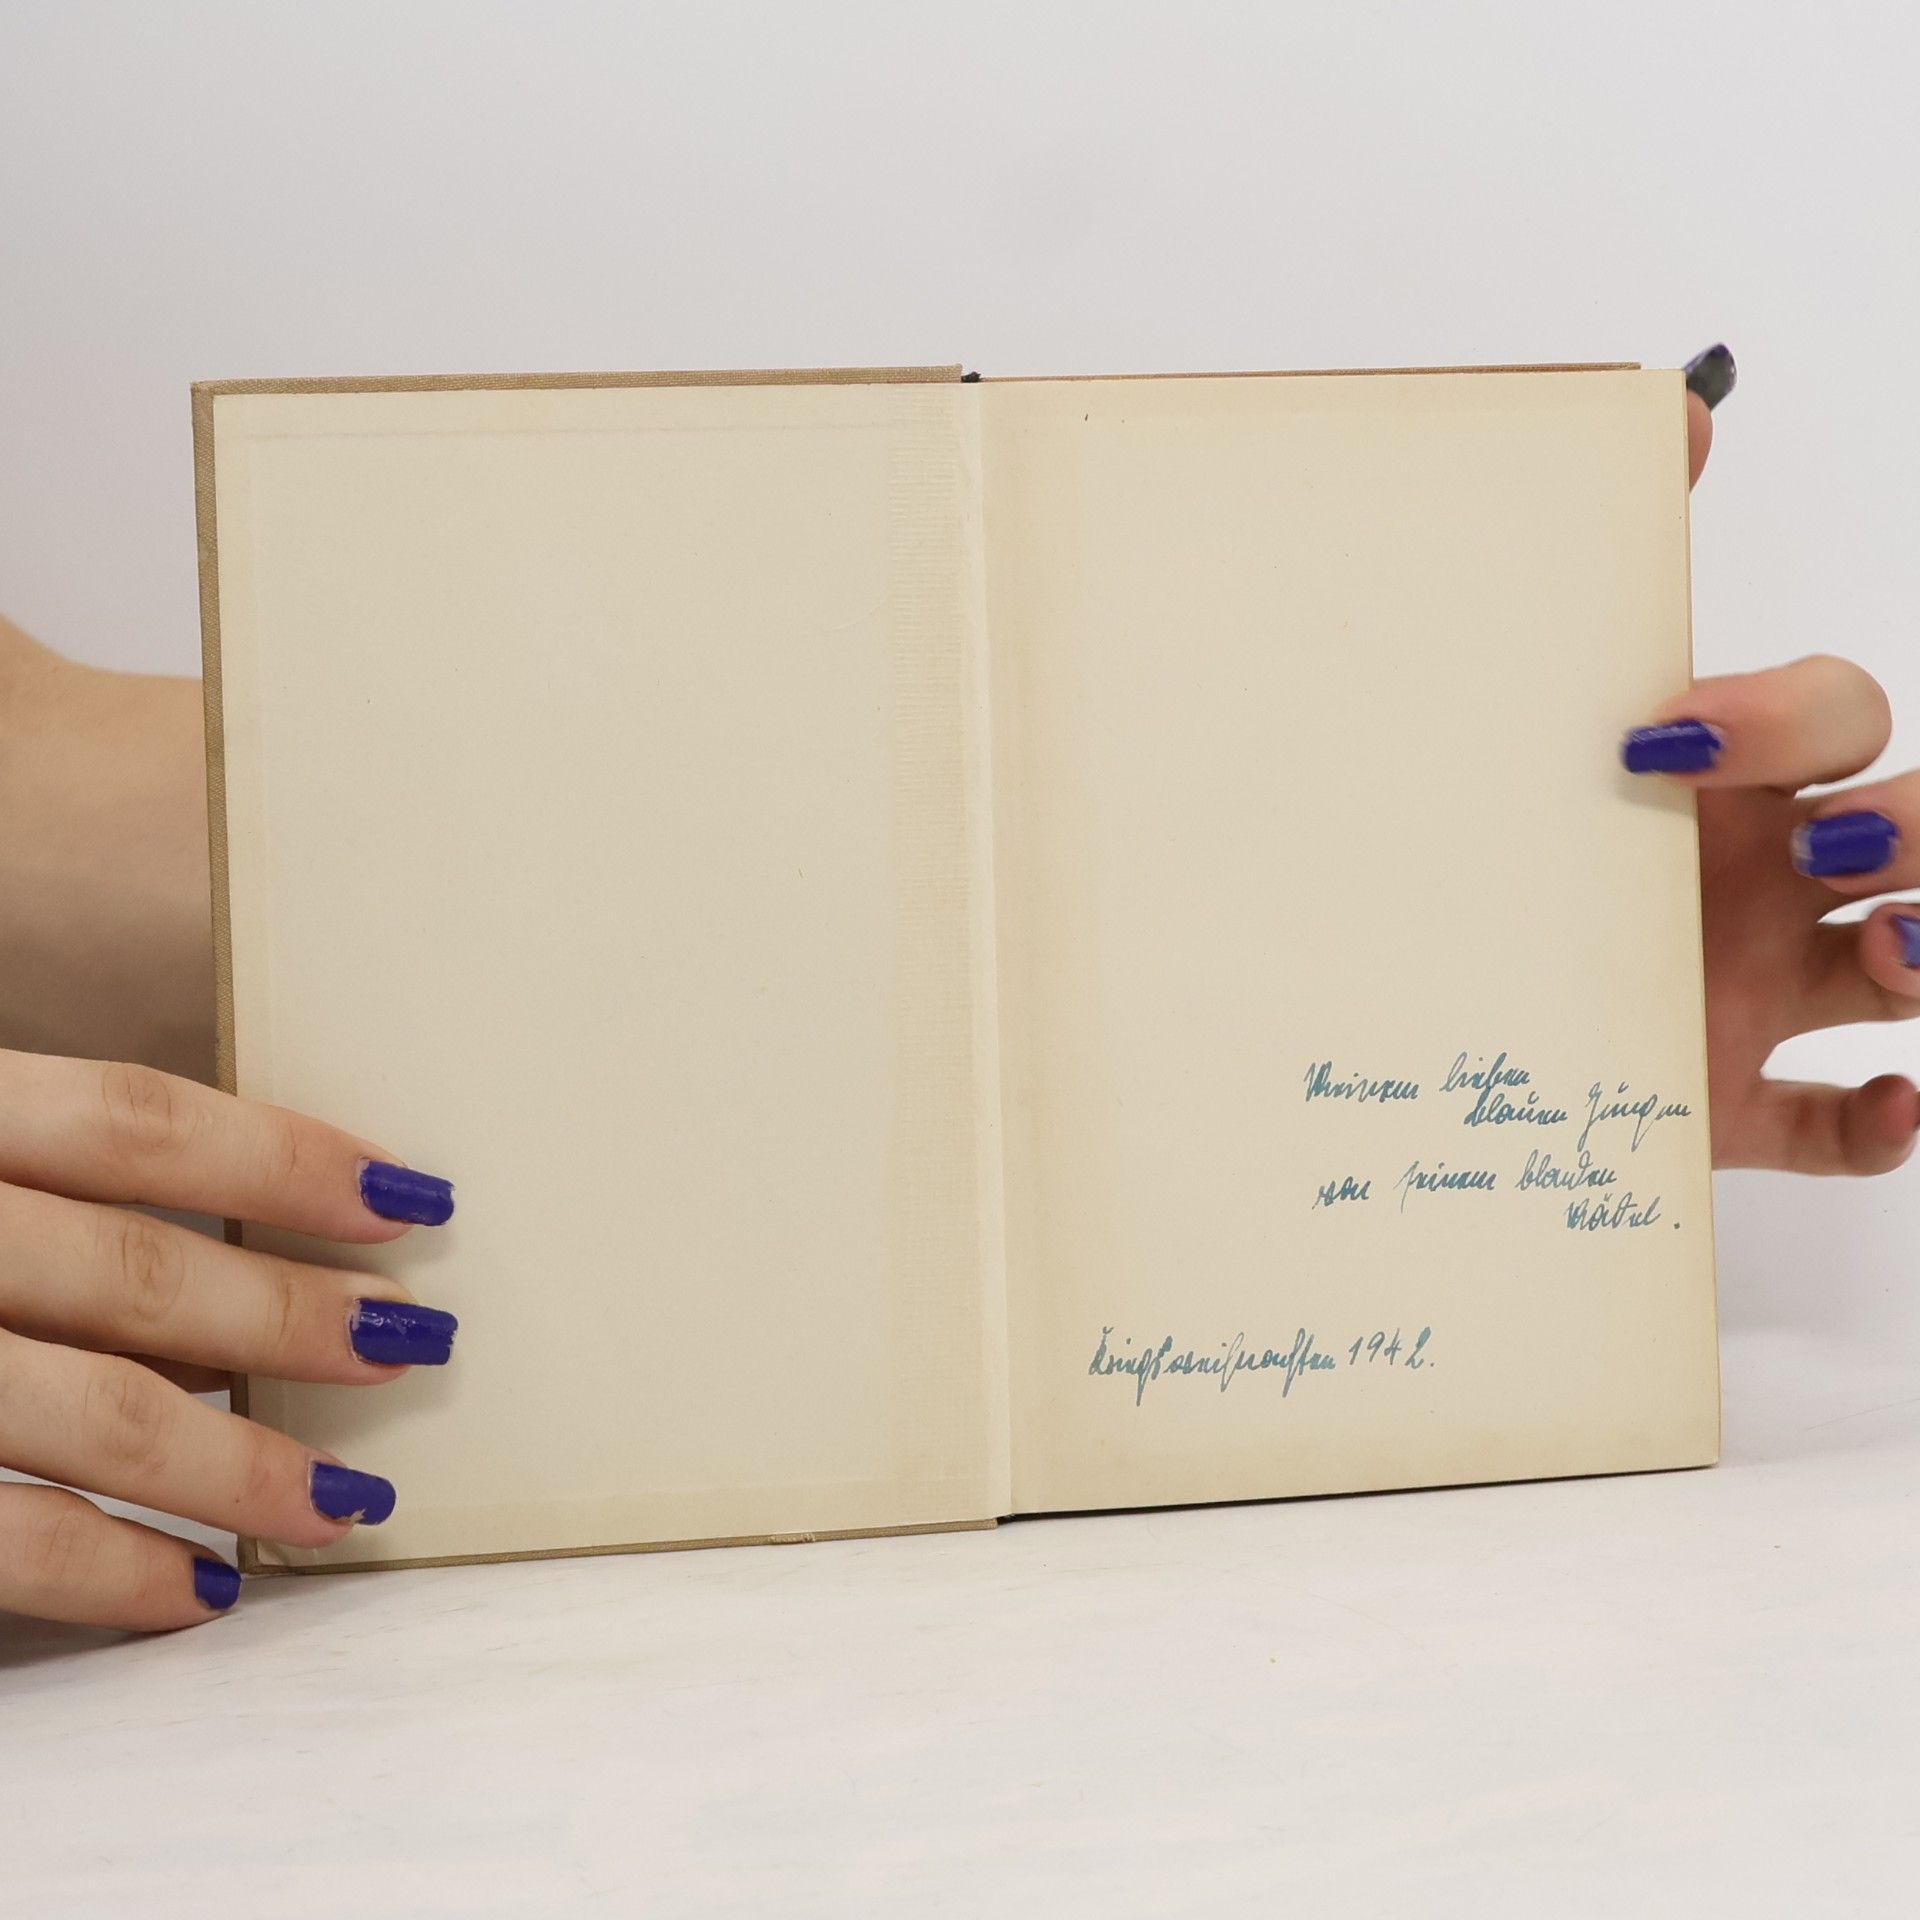 Meinem lieben
blauen Jungen
von seinem blonden
Mädel.
Kriegsweihnachten 1942.